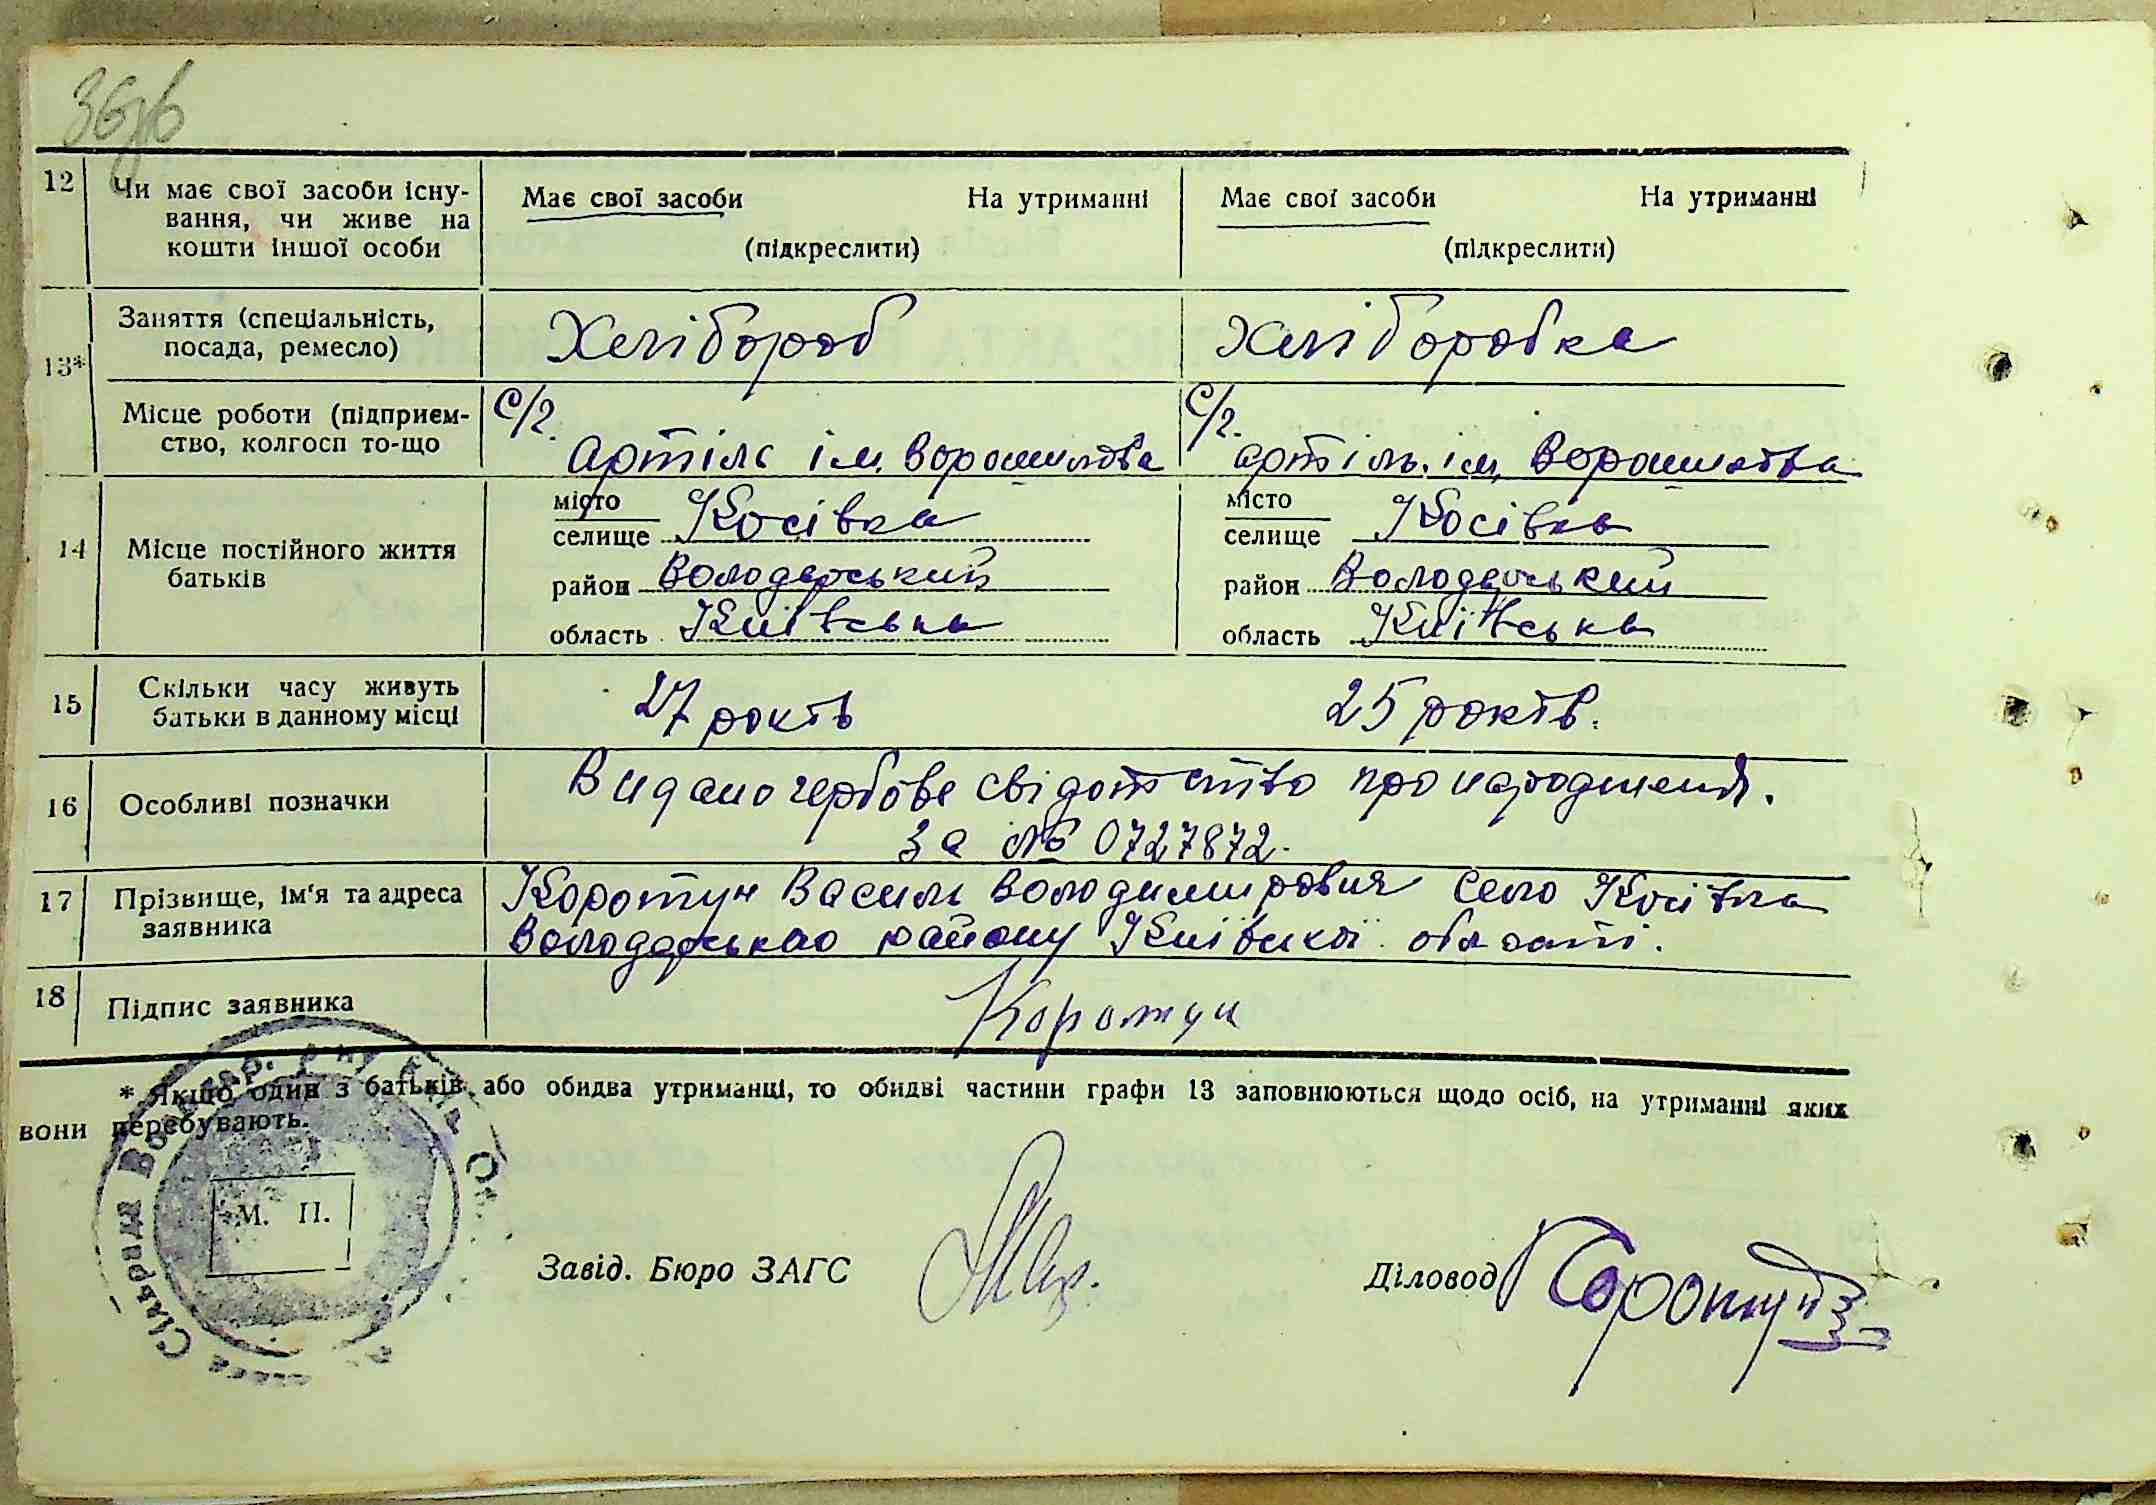 12 Чи має свої засоби існу-
вання, чи живе на
кошти іншої особи
Має свої засоби На утриманні
(підкреслити)
Має свої засоби На утриманні
(підкреслити)
13* Заняття (спеціальність,
посада, ремесло)
Хлібороб
Хліборобка
Місце роботи (підприєм-
ство, колгосп то-що
с/г.
артіль ім. Ворошилова
с/г.
артіль ім. Ворошилова
14 Місце постійного життя
батьків
місто
селище Косівка
район Володарський
область Київська
місто
селище Косівка
район Володарський
область Київська
15 Скільки часу живуть
батьки в данному місці
27 років
25 років.
16 Особливі позначки
Видано гербове свідотство про народження.
За № 0727872.
17 Прізвище, ім'я та адреса
заявника
Коротун Василь Володимирович село Косівка
Володарського району Київської області.
18 Підпис заявника
Коротун
* Якщо один з батьків або обидва утриманці, то обидві частини графи 13 заповнюються щодо осіб, на утриманні яких
вони перебувають.
Сільрада Володар. р-ну
М. П.
Завід. Бюро ЗАГС
Діловод Коротун